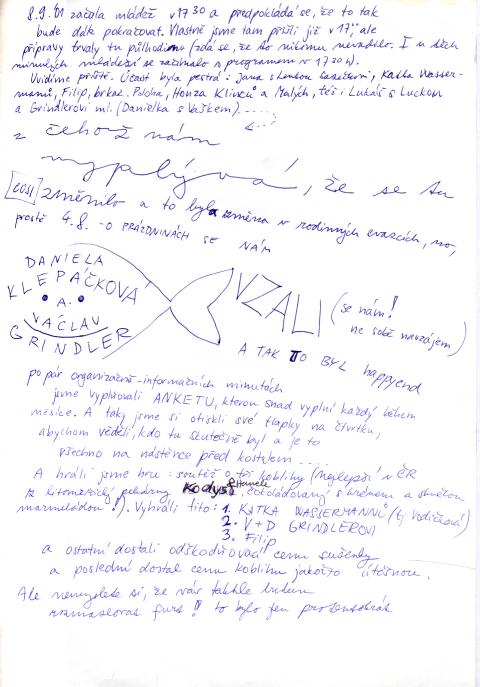 8.9.'01 začala mládež v 17 30 a předpokládá se, že to tak
bude dál pokračovat. Vlastně jsme tam přišli již v 17,00 ale
přípravy trvaly tu půlhodinu (zdá se, že to nikomu nevadilo. I u těch
minulých mládeží se začínalo s programem v 17 30 h).
Uvidíme příště. Účast byla pestrá: Jana s Lenkou, Katka Wasser-
mannů, Filip, Honza Klinců a Malých, též i Lukáš s Luckou
a Grindlerovi ml. (Danielka s Vaškem).....
z čehož nám
vyplývá, že se tu
[COSI] změnilo a to byla změna v rodinných svazcích, no,
prostě 4.8. - O PRÁZDNINÁCH SE NÁM
DANIELA
KLEPÁČKOVÁ
.A.
VÁCLAV
GRINDLER
VZALI (se nám!
ne sobě navzájem)
A TAK TO BYL happyend
po pár organizačně-informačních minutách
jsme vyplňovali ANKETU, kterou snad vyplní každý během
měsíce. A taky jsme si otiskli své tlapky na čtvrtku,
abychom věděli, kdo tu skutečně byl a je to
všechno na nástěnce před kostelem....
A hráli jsme hru: soutěž o tři koblihy (nejlepší v ČR
z litoměřické pekárny Kodys & Hamele, čokoládovaný s krémem a střečou
marmeládou!). Vyhráli tito: 1. KATKA WASSERMANNŮ (tj. Vodičková)
2. V+D GRINDLEROVI
3. Filip
a ostatní dostali odškodňovací cenu sušenky
a poslední dostal cenu koblihu jakožto útěšnou.
Ale nemyslete si, že vás takhle budem
rozmazlovat furt!! to bylo jen pro tentokrát